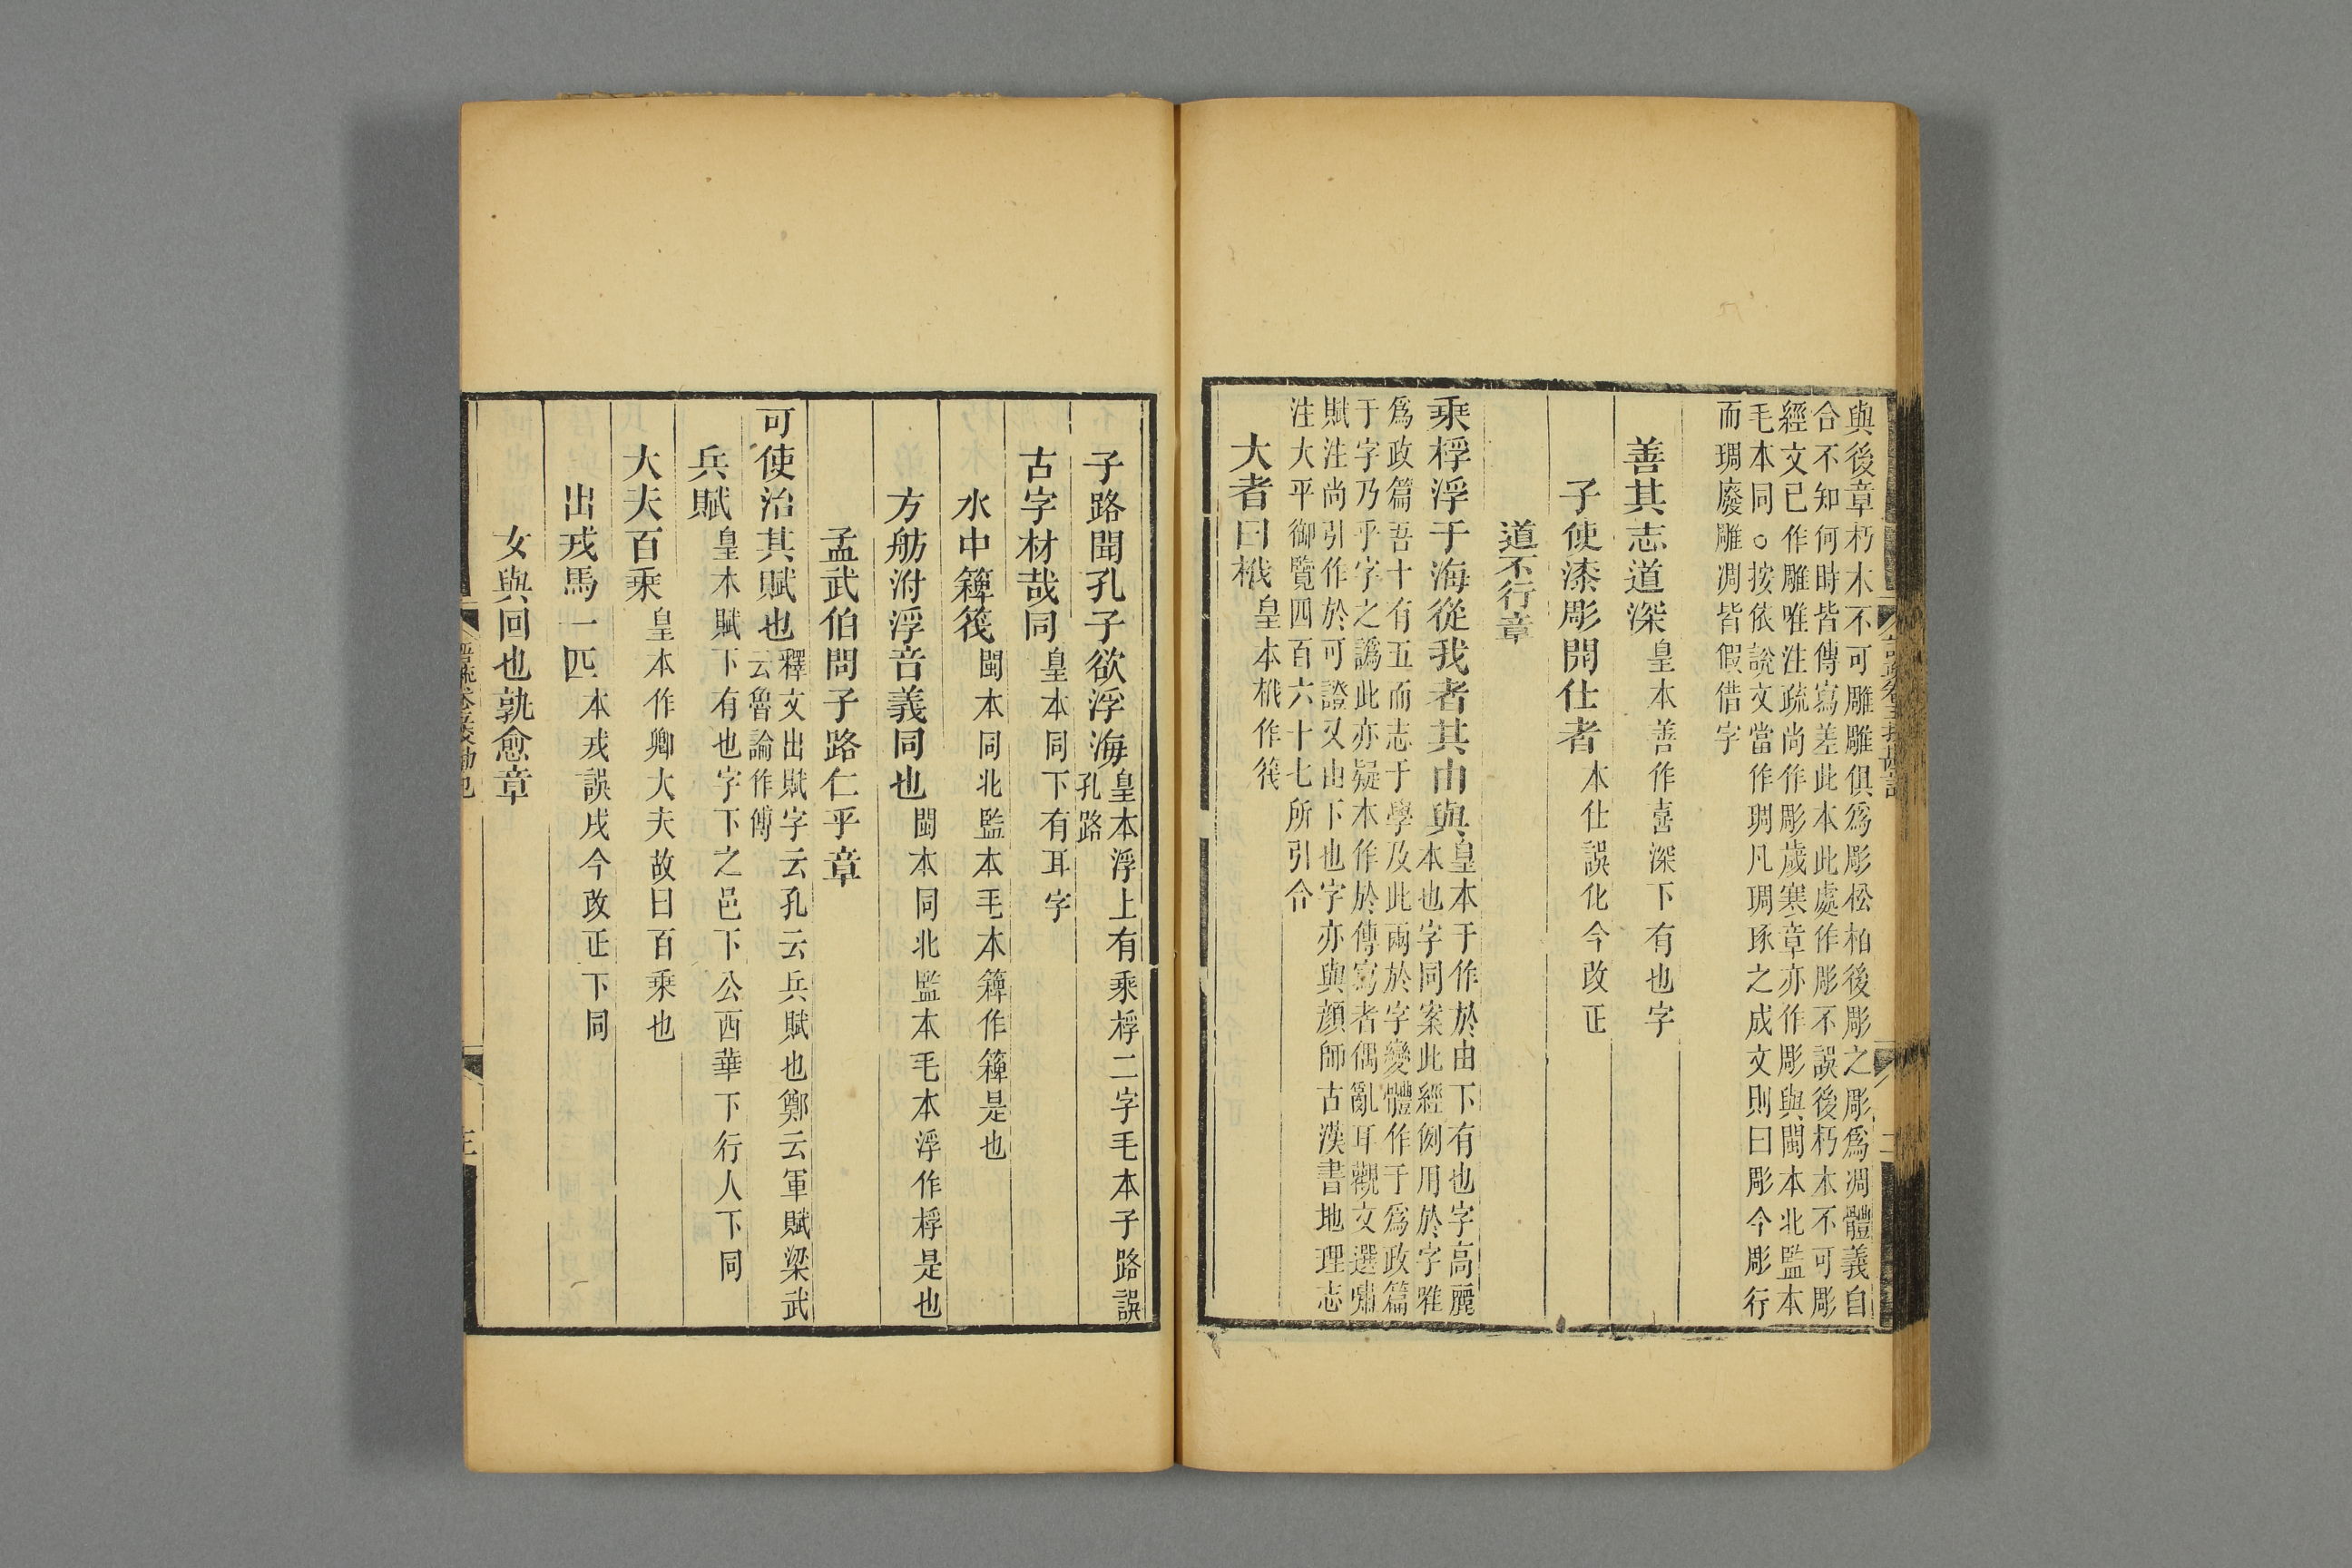 與後章朽木不可雕雕俱爲彫松柏後彫之彫爲凋體義自
合不知何時皆傳寫差此本此處作彫不誤後朽木不可彫
經文已作雕唯注疏尚作彫歲寒章亦作彫與閩本北監本
毛本同○按依說文當作琱凡琱琢之成文則曰彫今彫行
而琱廢雕凋皆假借字
善其志道深皇本善作喜深下有也字
子使漆彫開仕者本仕誤化今改正
道不行章
乘桴浮于海從我者其由與皇本于作於由下有也字高麗
本也字同案此經例用於字唯
爲政篇吾十有五而志于學及此兩於字變體作于爲政篇
于字乃乎字之譌此亦疑本作於傳寫者偶亂耳觀文選嘯
賦注尚引作於可證又由下也字亦與顏師古漢書地理志
注大平御覽四百六十七所引合
大者曰栰皇本栰作筏
子路聞孔子欲浮海皇本浮上有乘桴二字毛本子路誤
孔路
古字材哉同皇本同下有耳字
水中簰筏閩本同北監本毛本簰作簰是也
方舫泭浮音義同也閩本同北監本毛本浮作桴是也
孟武伯問子路仁乎章
可使治其賦也釋文出賦字云孔云兵賦也鄭云軍賦梁武
云魯論作傅
兵賦皇本賦下有也字下之邑下公西華下行人下同
大夫百乘皇本作卿大夫故曰百乘也
出戎馬一匹本戎誤戌今改正下同
女與回也孰愈章
三